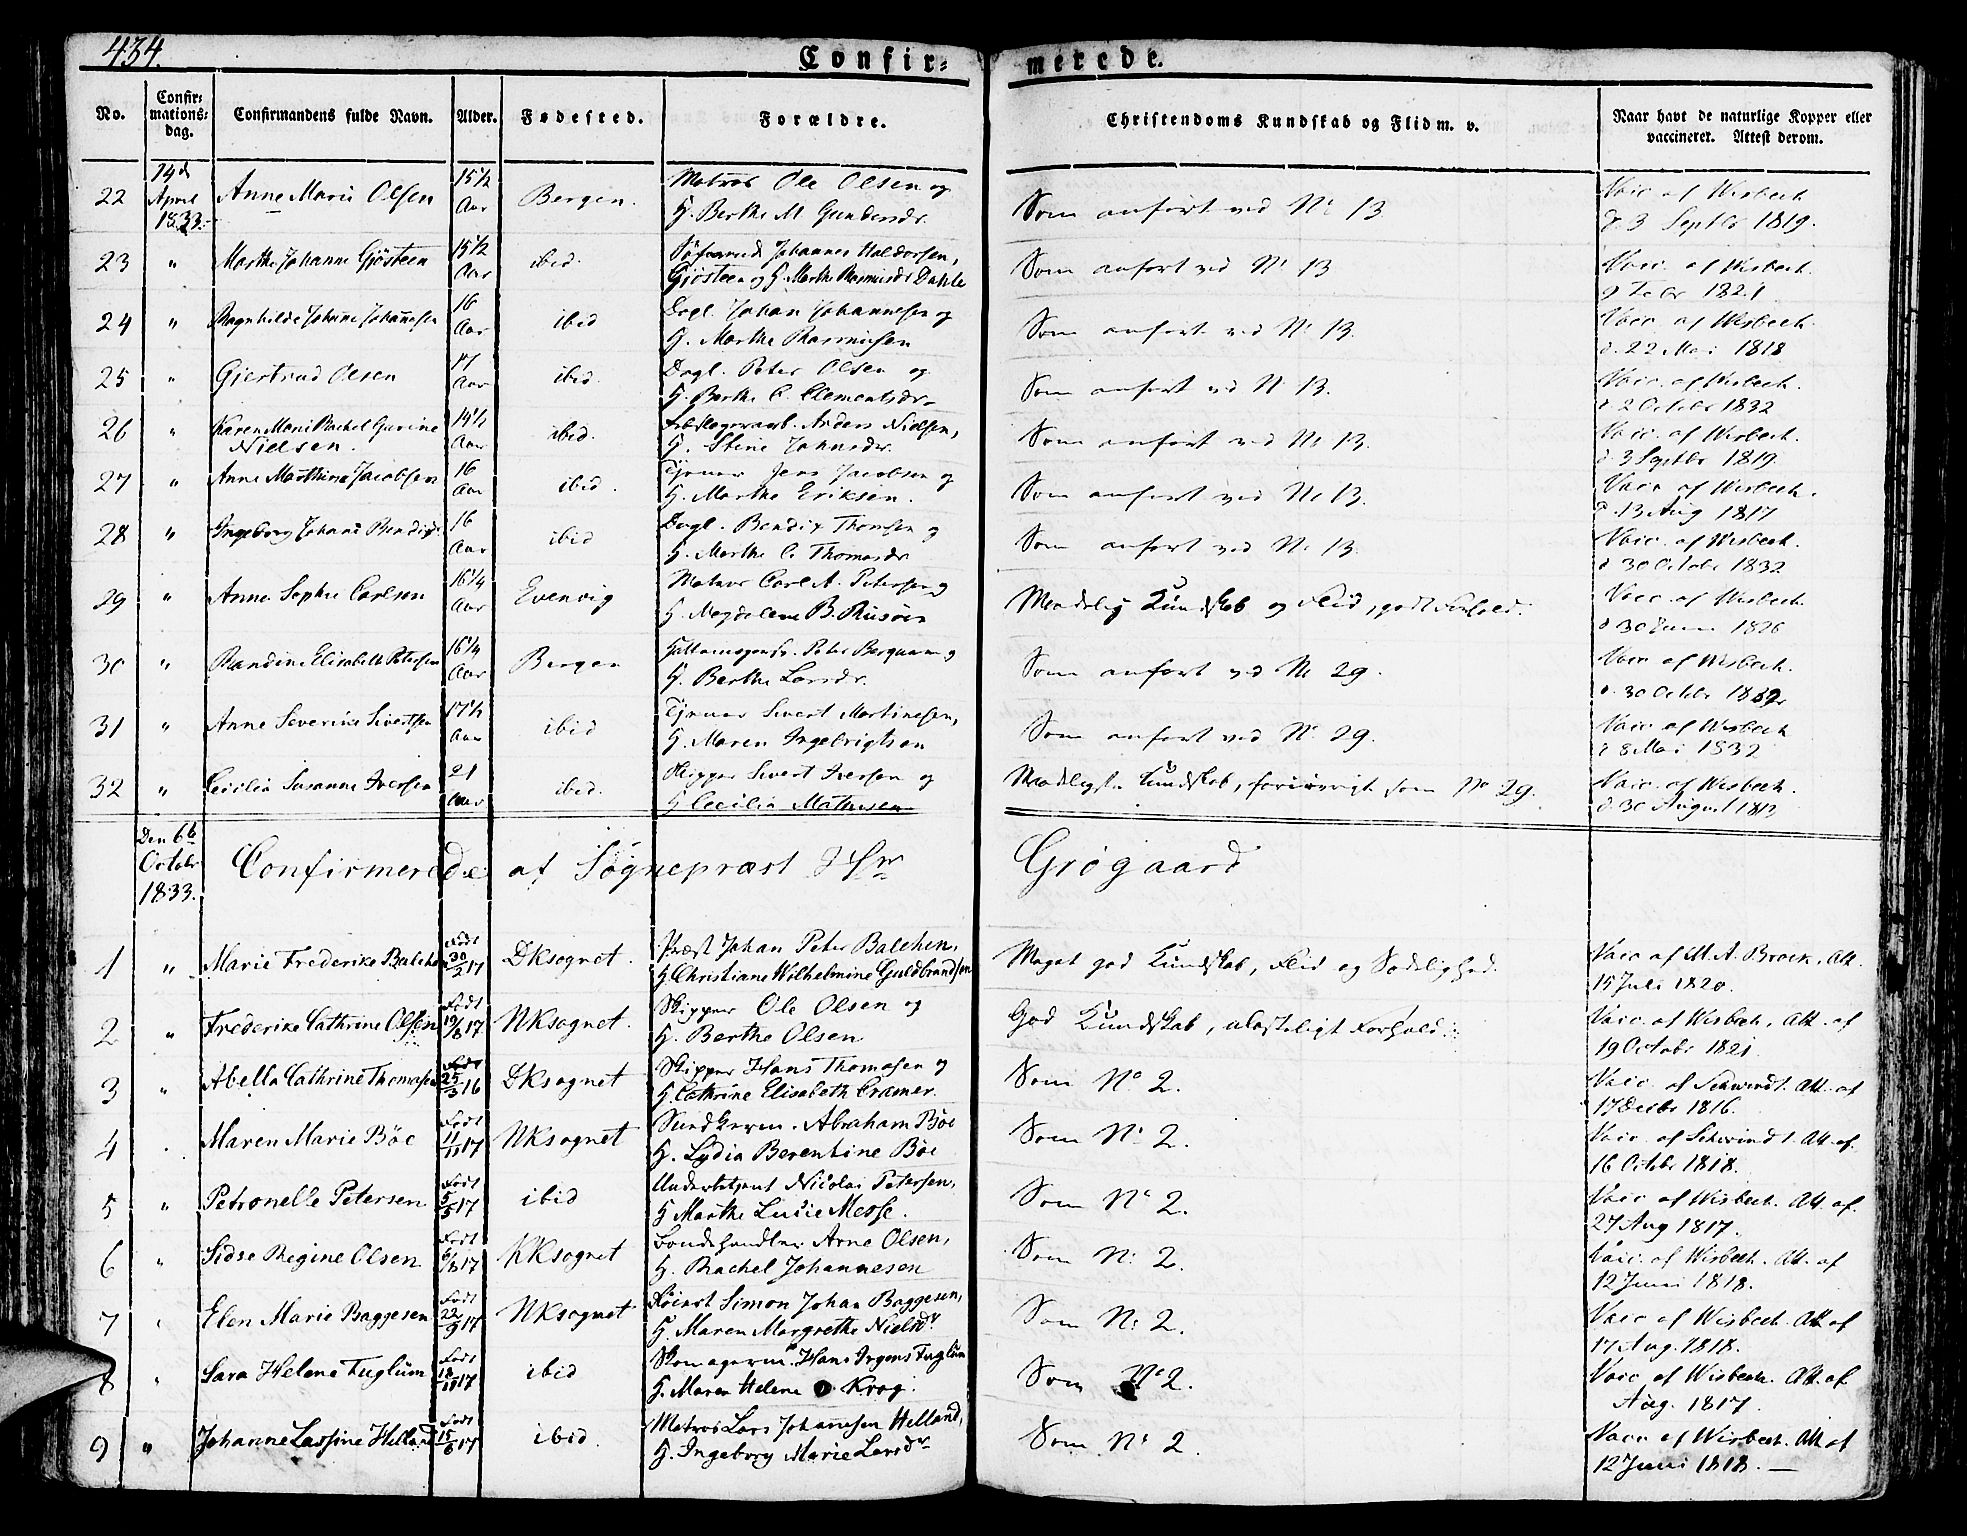 434.
Confir= merede.
No. Confir=mations=dag. Confirmandens fulde Navn. Alder. Fødested. Forældre. Christendoms Kundskab og Flid m. v. Naar havt de naturlige Kopper eller vaccineret. Attest derom.
22 14d April 1833. Anne Marie Olsen 15 1/2 Aar Bergen. Matros Ole Olsen og H. Berthe M. Gundersdr. Som anført ved No 13 Vacc af Wisbech d. 3 Septbr 1819.
23 " Marthe Johanne Gjösteen 15 1/2 Aar ibid. Johannes Haldorsen, Gjösteen og H. Marthe Rasmusdr Dahle Som anført ved No 13 Vacc. af Wisbech. 9 Febr 1821
24 " Ragnhilde Johanne Johannesen 16 Aar ibid Dagl. Johan Johannesen og H. Marthe Rasmusen Som anført ved No 13. Vacc af Wisbech. d. 22 Mai 1818
25 " Gjertrud Olsen 17 Aar ibid. Dagl. Peter Olsen og H. Berthe C. Clementsdr Som anført ved No 13. Vacc. af Wisbech. d. 2 Octobr 1832
26 " Karen Marie Rachel Gurine Nielsen. 14 1/2 Aar ibid. Anders Nielsen, H. Stine Johnsdr. Som anført ved No 13. Vacc. af Wisbech. d. 3 Septbr 1819.
27 " Anne Marthine Jacobsen 16 Aar ibid. Jens Jacobsen og H. Marthe Eriksen. Som anført ved No 13. Vacc af Wisbech. d. 13 Aug 1817
28 " Ingeborg Johanne 16 Aar ibid Dagl. Bendix Thomsen og H. Marthe C. Thomasdr Som anført ved No 13. Vacc. af Wisbech. d 30 Octobr 1832
29 " Anne Sophie Carlsen 16 1/4 Aar Evenvig Matros Carl A. Petersen og H. Magdalene B. Maadelig Kundskab og Flid, godt Forhold. Vacc. af Wisbech. d 30 Juni 1826
30 " Randine Elisabeth Petersen 16 1/4 Aar Bergen Peter og H. Berthe Larsdr. Som anført ved No 29. Vacc af Wisbech. d. 30 Octbr 1832
31 " Anne Severine Sivertsen 17 1/2 Aar ibid Sivert Martinesen, H. Maren Ingebrigtsen Som anført ved No. 29. Vacc af Wisbech d 8 Mai 1832
32 " Cecilia Susanne Iversen 21 Aar ibid. Skipper Sivert Iversen og H Cecilia Mathiesen Maadeligste Kundskab, forøvrigt som No 29. Vacc af Wisbech. d. 30 August 1813
Den 6te Octobr 1833. Confirmerede af Sognepræst Hr Grøgaard
1 " Marie Frederike Balchen Født 30/2 17 DKsognet. Præst Johan Peter Balchen, H. Christiane Wilhelmine Guldbrandsen Meget god Kundskab, Flid og Sædelighed. Vacc af M. A. Brock, Att. 15 Juli 1820.
2 " Frederike Cathrine Olsen Født 19/8 17 NKsognet. Skipper Ole Olsen og H. Berthe Olsen God Kundskab, ulasteligt Forhold. Vacc. af Wisbech, Att. af 19 Octobr 1821.
3 " Abella Cathrine Thomasen Født 25/3 16 DKsognet Skipper Hans Thomasen og H. Cathrine Elisabeth Cramer. Som No 2. Vacc. af Schwindt. Att. af 17 Decbr 1816.
4 " Maren Marie Böe Født 11/11 17 NKsognet Abraham Böe H. Lydia Berentine Böe Som No 2. Vacc. af Schwindt. Att. af. 16 Octbr 1818.
5 " Petronelle Petersen Født 5/5 17 ibid Nicolai Petersen, H Marthe Lucie Messe. Som No 2. Vacc af Wisbech. Att. af. 27 Aug 1817.
6 " Sidse Regine Olsen Født 6/8 17 KKsognet Bondehandler Arne Olsen, H. Rachel Johannesen Som No 2. Vacc. af Wisbech. Att. af 12 Juni 1818.
7 " Elen Marie Baggesen Født 22/9 17 NKsognet Simon Johan Baggesen, H. Maren Margrethe Nielsdr Som No 2. Vacc af Wisbech. Att af 17 Aug. 1818.
8 " Sara Helene Fuglum Født 18/11 17 ibid Skomagerm. Hans Irgens Fuglum H. Maren Helene Krog. Som No 2. Vacc af Wisbech. Att. af Aug. 1817.
9 " Johanne Lassine Helland Født 15/6 17 ibid. Matros Lars Johannesen Helland, H. Ingeborg Marie Larsdr Som No 2. Vacc af Wisbech. Att af 12 Juni 1818. —